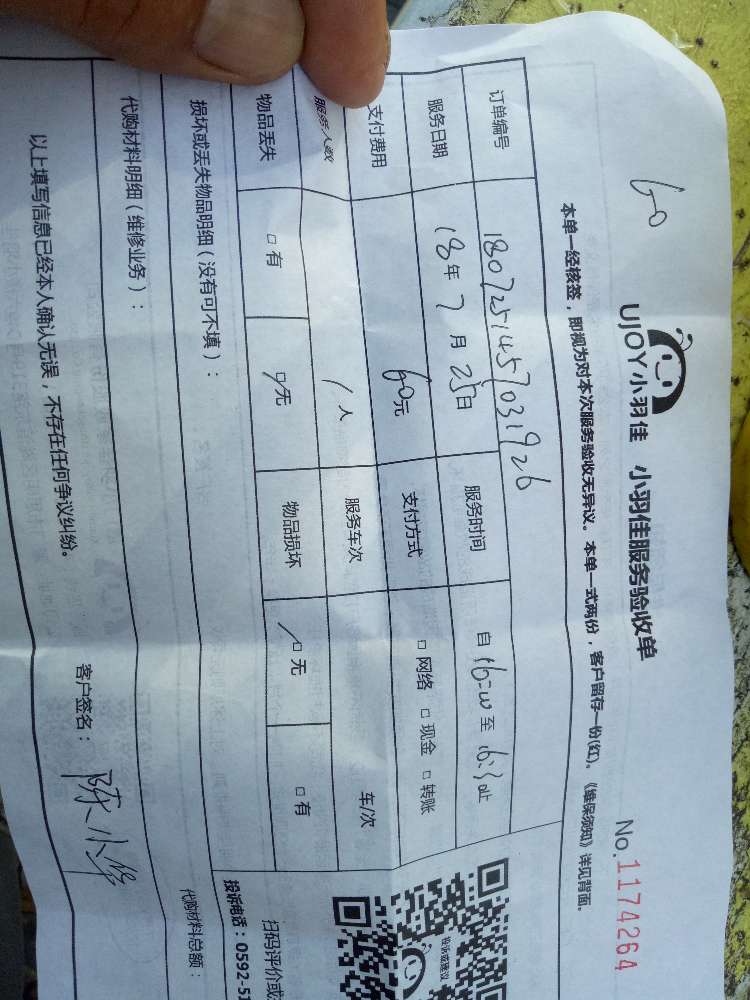 60
UJOY小羽佳 小羽佳服务验收单
No.1174264
本单一经核签，即视为对本次服务验收无异议。本单一式两份，客户留存一份(红)。《维保须知》详见背面。
订单编号 1807251457031926
服务日期 18年7月25日 服务时间 自16:00至16:30止
支付费用 60元 支付方式 □网络 □现金 □转账
服务人数 1人 服务车次 车/次
物品丢失 □有 ☑无 物品损坏 ☑无 □有
损坏或丢失物品明细（没有可不填）：
代购材料明细（维修业务）：
代购材料总额：
以上填写信息已经本人确认无误，不存在任何争议纠纷。
客户签名：陈小华
投诉或建议
扫码评价或
投诉电话：0592-51